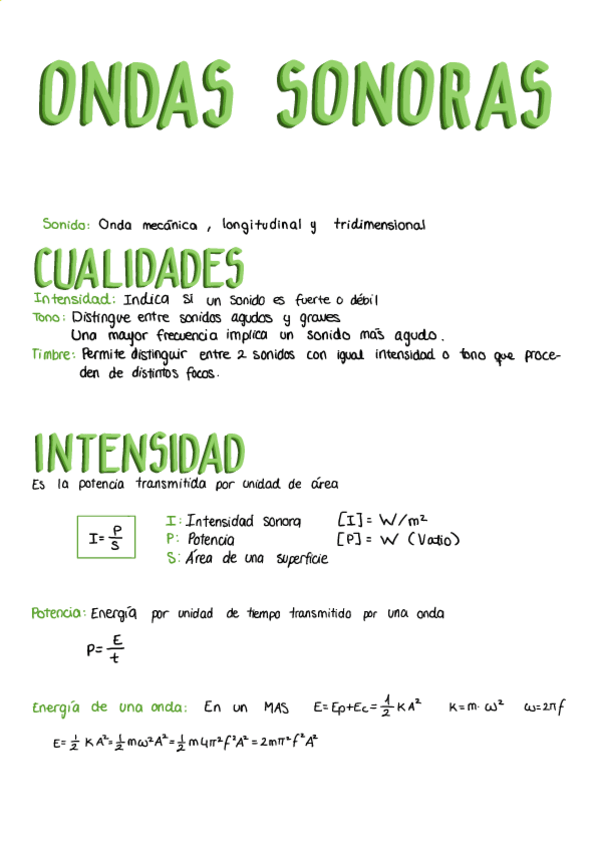 ONDAS SONORAS
Sonido: Onda mecánica, longitudinal y tridimensional
CUALIDADES
Intensidad: Indica si un sonido es fuerte o débil
Tono: Distingue entre sonidos agudos y graves
Una mayor frecuencia implica un sonido más agudo.
Timbre: Permite distinguir entre 2 sonidos con igual intensidad o tono que proce-
den de distintos focos.
INTENSIDAD
Es la potencia transmitida por unidad de área
I = P/S
I: Intensidad sonora [I] = W/m²
P: Potencia [P] = W (Vatio)
S: Área de una superficie
Potencia: Energía por unidad de tiempo transmitido por una onda
P = E/t
Energía de una onda: En un MAS E = Ep + Ec = 1/2 KA² K = m · ω² ω = 2πf
E = 1/2 KA² = 1/2 mω²A² = 1/2 m4π²f²A² = 2mπ²f²A²